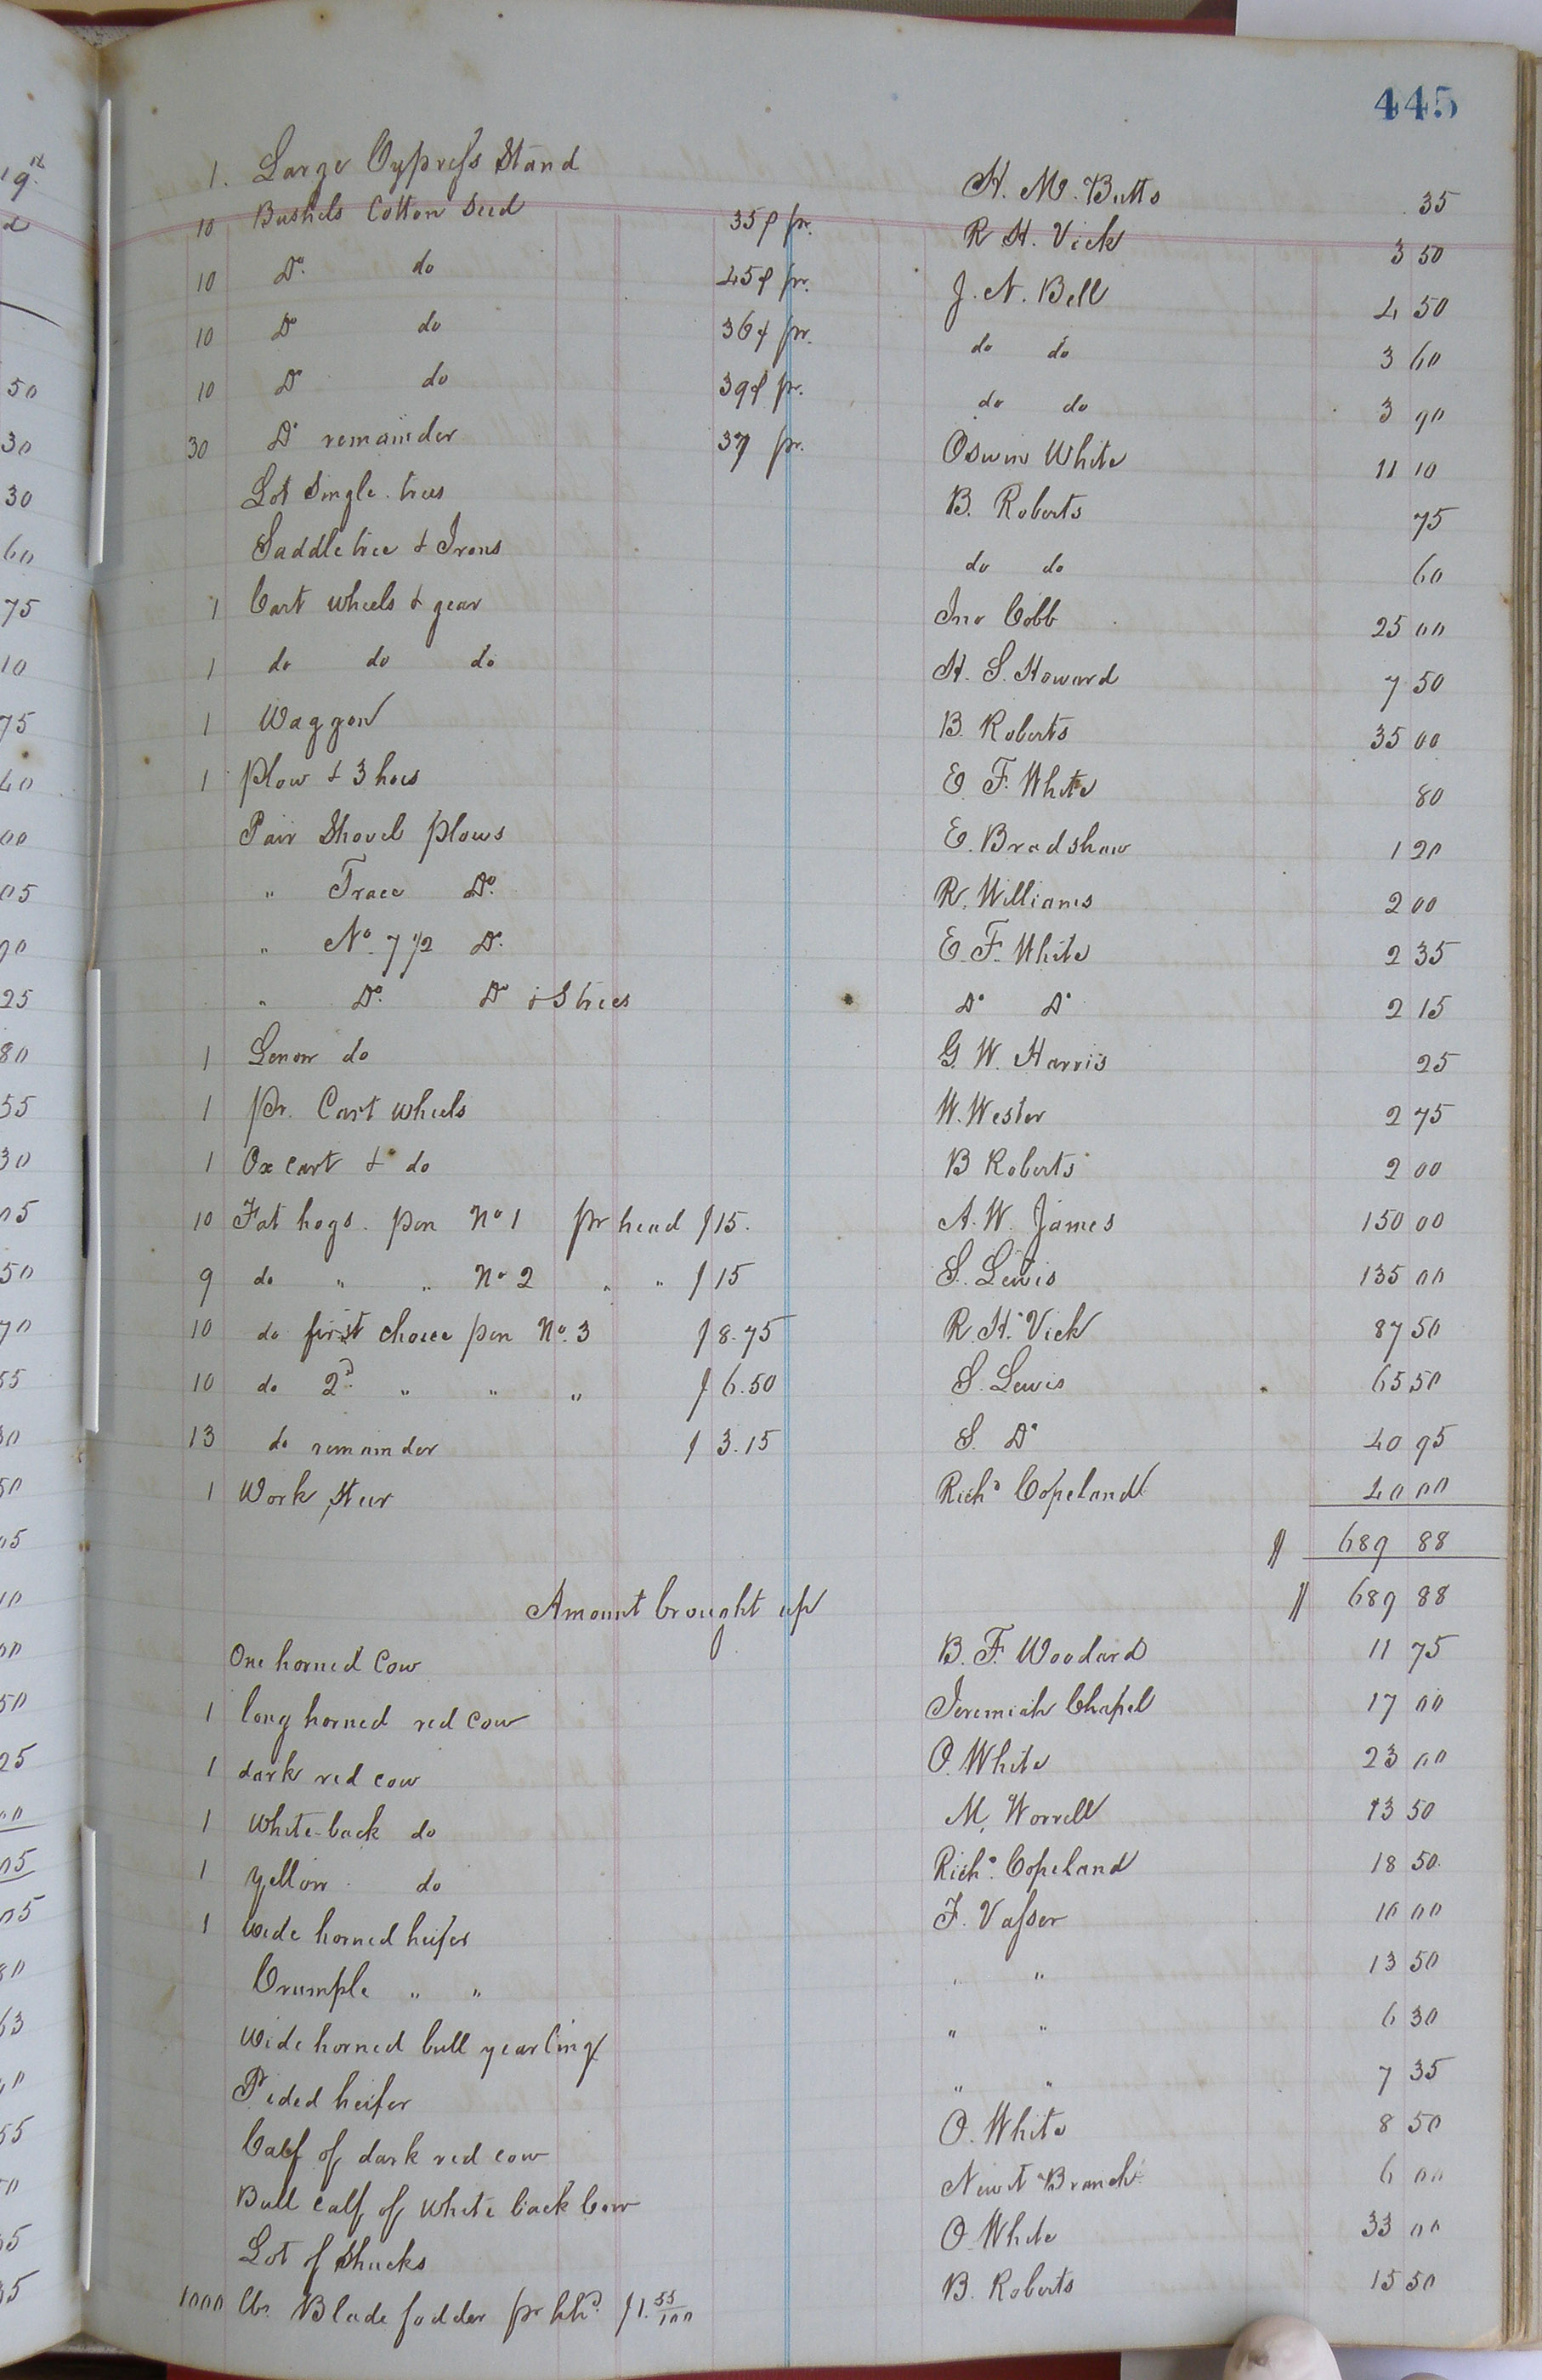 445
1. Large Cypress Stand H. M. Butts 35
10 Bushels Cotton Seed 35¢ pr. R H. Vick 3 50
10 Do. do 45¢ pr. J. N. Bell 4 50
10 Do do 36¢ pr. do do 3 60
10 Do do 39¢ pr. do do 3 90
30 Do remainder 37 pr. Oswin White 11 10
Lot Single-trees B. Roberts 75
Saddle tree & Irons do do 60
1 Cart wheels & gear Jno Cobb 25 00
1 do do do H. S. Howard 7 50
1 Waggon B. Roberts 35 00
1 Plow & 3 hoes E. F. White 80
Pair Shovel Plows E. Bradshaw 1 20
" Trace Do. R. Williams 2 00
" No. 7 1/2 Do. E. F. White 2 35
" Do. Do & S trees Do Do 2 15
1 do G. W. Harris 25
1 Pr. Cart wheels W. Wester 2 75
1 Ox cart & do B Roberts 2 00
10 Fat hogs. pen No 1 pr head $15. A. W. James 150 00
9 do " " No 2 " " $15 S. Lewis 135 00
10 do first choice pen No. 3 $8.75 R. H. Vick 87 50
10 do 2d. " " " $6.50 S. Lewis 65 50
13 do remainder $3.15 S. Do 40 95
1 Work Steer Richd Copeland 40 00
$ 689 88
Amount brought up $ 689 88
One horned Cow B. F. Woodard 11 75
1 long horned red Cow Jeremiah Chapel 17 00
1 dark red cow O. White 23 00
1 White-back do M. Worrell 13 50
1 yellow do Richd. Copeland 18 50
1 wide horned heifer F. Vasser 10 00
Crumple " " " " 13 50
Wide horned bull yearling " " 6 30
Pided heifer " " 7 35
Calf of dark red cow O. White 8 50
Bull calf of White back Cow Newit Branch 6 00
Lot of Shucks O White 33 00
1000 lbs. Blade fodder pr hhd. $1.55/100 B. Roberts 15 50